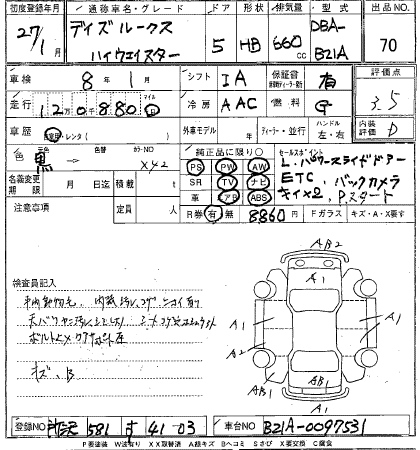 初度登録年月 通称車名・グレード ドア 形状 排気量 型式 出品NO.
27/1月 デイズルークス ハイウェイスター 5 HB 660cc DBA-B21A 70
車検 8年1月 シフト IA 保証書 有 評価点
走行 120,880 マイル km 冷房 AAC 燃料 G 3.5
車歴 自家用・レンタ 外車モデル ディーラー・並行 ハンドル 左・右 内装評価 D
色 元色 黒 → 色替 カラーNO X42 純正品に限り〇 セールスポイント
名義変更期限 月 日迄 積載 t PS PW AW L.パワースライドドアー
SR TV ナビ ETC、バックカメラ
注意事項 定員 人 革 エアB ABS キイ×2、P.スタート
R券 有 無 8860円 Fガラス キズ・A・X要す
検査員記入
AB2
A1
車内動物毛、内装汚レコゲ
A1 A1
A2 A2
ボルト
キズ、B
AB1 AB1 A1
A1
登録NO 所沢 581 す 41-03 車台NO B21A-0097531
P要塗装 W波有り XX取替済 A線キズ Bヘコミ Sさび X要交換 C腐食